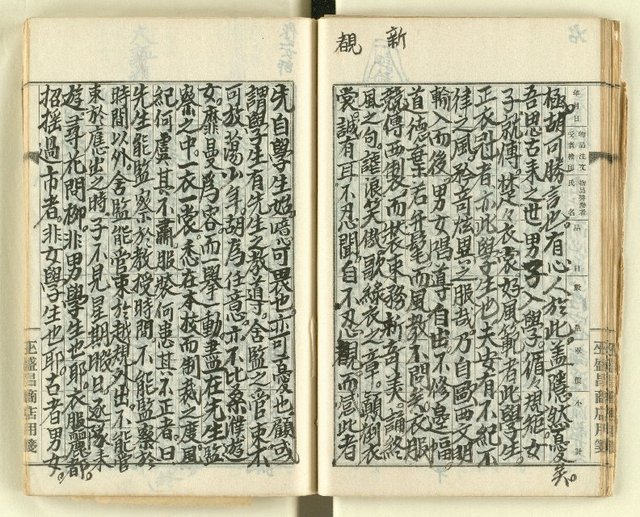 新
覩
極。胡可勝言也。有心人於此。蓋隱然憂矣。
吾思古來之世。男子入學。循々規矩。女
子就傅。楚々衣裳。好風範者。此學生。
正衣冠者。亦此學生也。夫安有不紀不
律之風。矜奇炫異之服哉。乃自歐西文明
輸入而後。男女唱導自由。不修邊幅。
首德
競傳西製。而裝束務
風之句。謔浪笑傲。歌綠衣之章。顛倒衣
裳。誠有耳不忍聞。目不忍觀。而慮此者
先自學生始。噫可畏也。亦可憂也。顧或
謂學生有先生之教導。舍監之管束。不
可放蕩少年。胡為任意。亦不比桑僕遊
女。靡曼為容。而舉動盡在先生監
察之中。一衣一裳。悉在本技而制裁之。度風
紀何虞其不肅。服裝何患其不正者。曰。
先生能監察於教授時間。不能監察於
時間以外。舍監能管束於越規外出。不能管
束於應出之時。子不見星期暇日。逐隊來
遊。尋花問柳。非男學生也耶。衣服麗都。
招搖過市者。非女學生也耶。古者男女
年月日
品目
數量
單價
小計
巫盛昌商店用箋
巫盛昌商店用箋